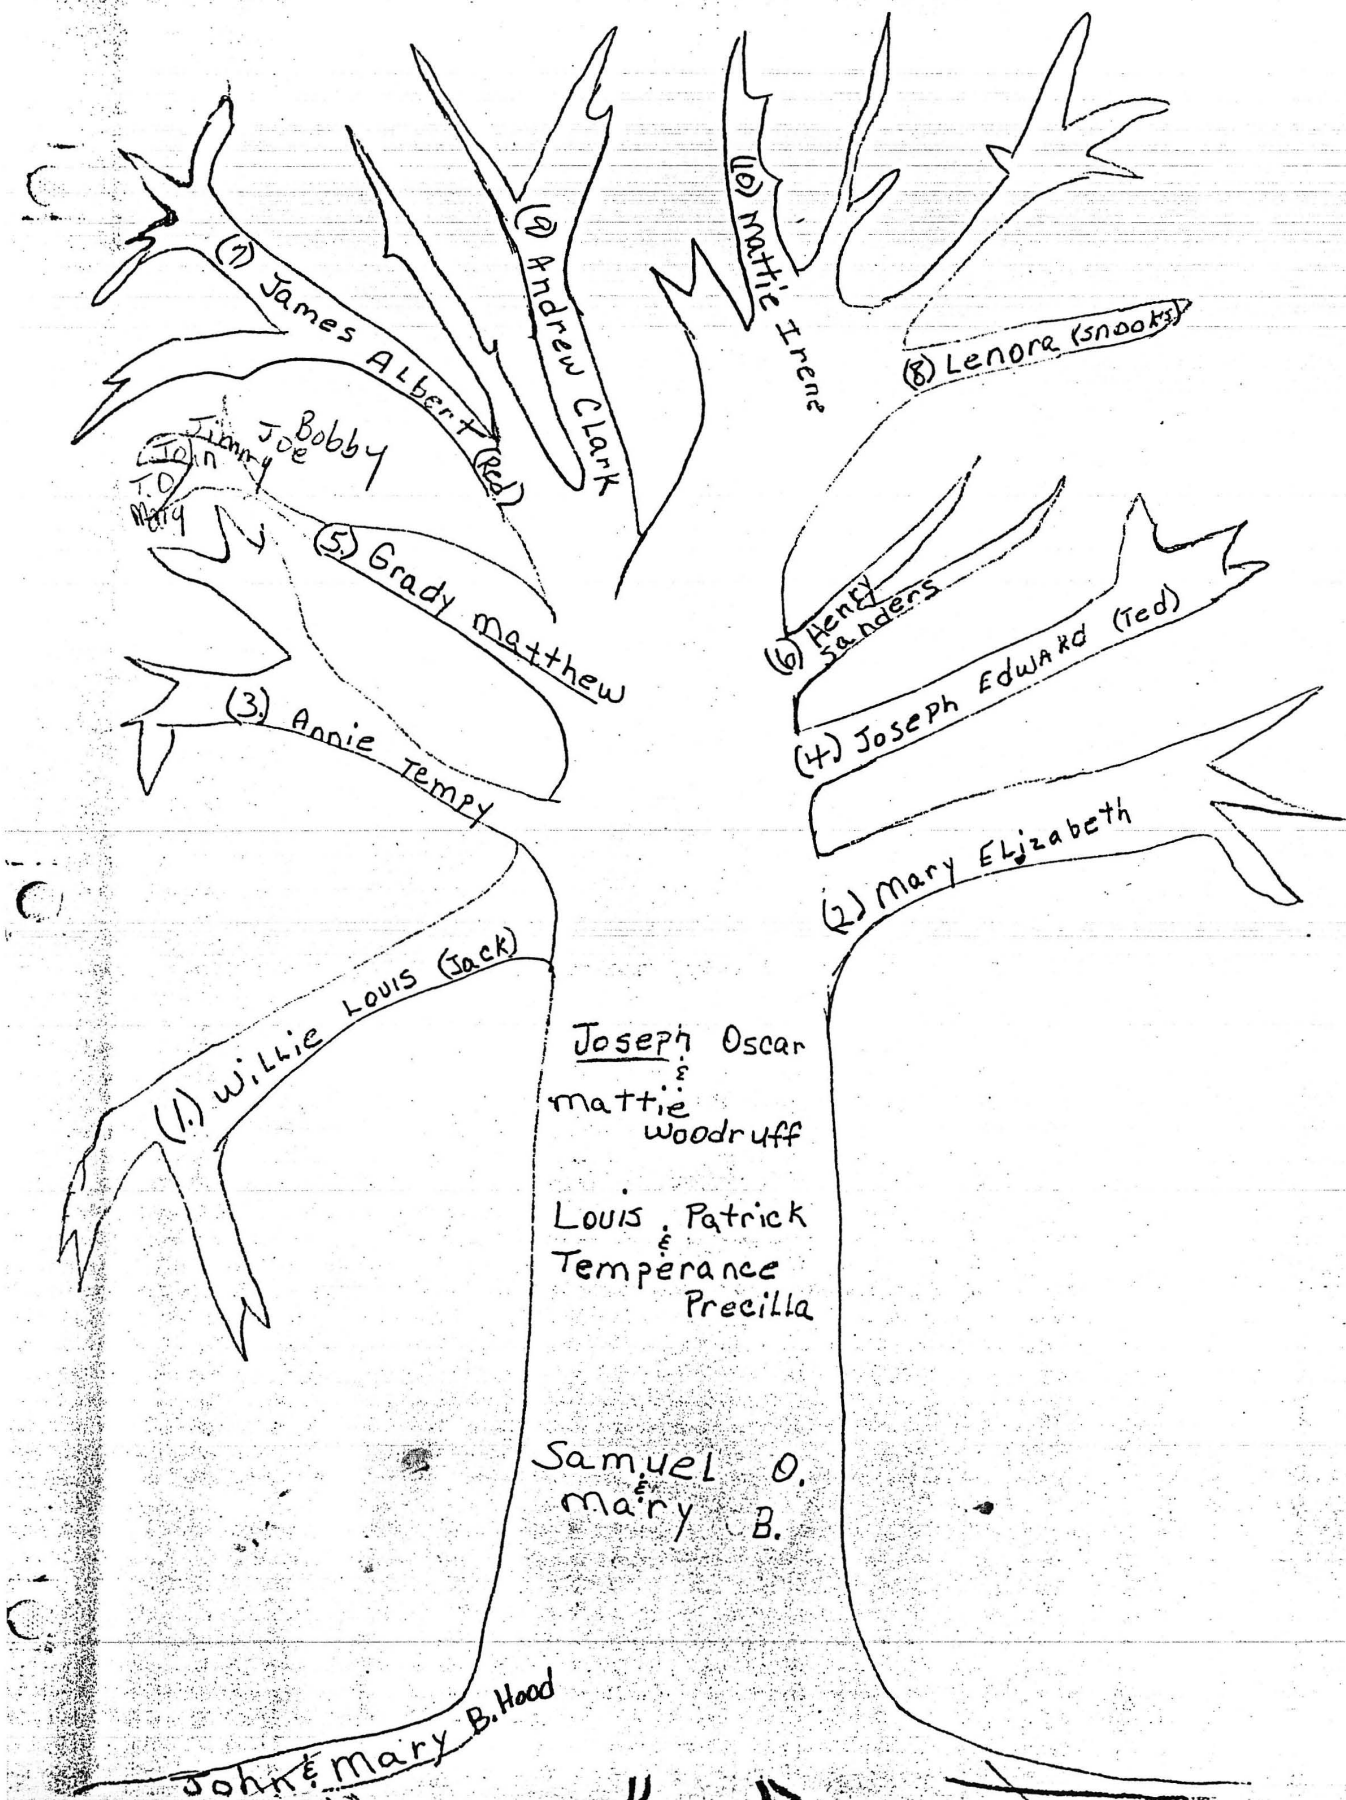 (10) Mattie Irene
(9) Andrew Clark
(7) James Albert (Red)
(8) Lenora (Snooks)
Bobby
Joe
Jimmy
John
T.O.
Mary
(5.) Grady Matthew
(6) Henry
Sanders
(4.) Joseph Edward (Ted)
(3.) Annie Tempy
(2) Mary Elizabeth
(1.) Willie Louis (Jack)
Joseph Oscar
&
Mattie
Woodruff
Louis Patrick
&
Temperance
Precilla
Samuel O.
&
Mary B.
John & Mary B. Hood